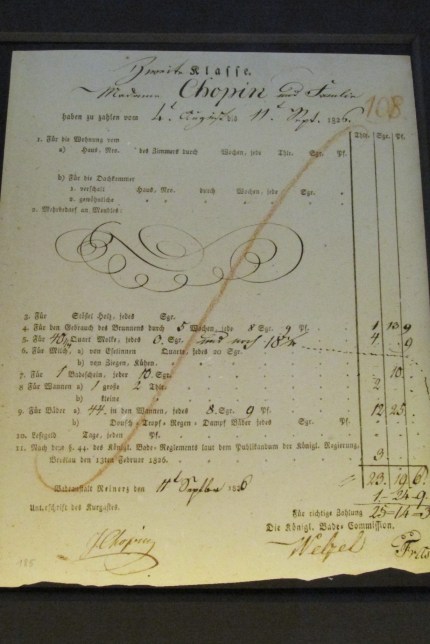 Zweite Klasse.
Madame Chopin und Familie
108
haben zu zahlen vom 4t August bis 11t Sept. 1826.
Thlr. Sgr. Pf.
1. Für die Wohnung vom
a) Haus, Nro. des Zimmers durch Wochen, jede Thlr. Sgr. Pf.
b) Für die Dachkammer
1. verschalt Haus, Nro. durch Wochen, jede Sgr.
2. gewöhnliche
2. Mehrbedarf an Meubles:
3. Für Stößel Holz, jedes Sgr.
4. Für den Gebrauch des Brunnens durch 5 Wochen, jede 8 Sgr. 9 Pf. 1 13 9
5. Für Quart Molke, jedes Sgr. 4 9
6. Für Milch, a) von Eselinnen Quart, jedes 20 Sgr.
b) von Ziegen, Kühen.
7. Für 1 Badeschein, jeder 10 Sgr. 10
8. Für Wannen a) 1 große 2 Thlr. 2
b) kleine
9. Für Bäder a) 44 in den Wannen, jedes 8 Sgr. 9 Pf. 12 25
b) Dousch- Tropf- Regen- Dampf Bäder jedes Sgr. Pf.
10. Lesegeld Tage, jeden Pf.
11. Nach dem §. 44. des Königl. Bade-Reglements laut dem Publikandum der Königl. Regierung.
Breslau den 13ten Februar 1826. 3
23 19 6
Badeanstalt Reinerz den 11t September 1826
1 24 9
Für richtige Zahlung 25 14 3
Unterschrift des Kurgastes. Die Königl. Bade-Commission.
Chopin Welzel
185